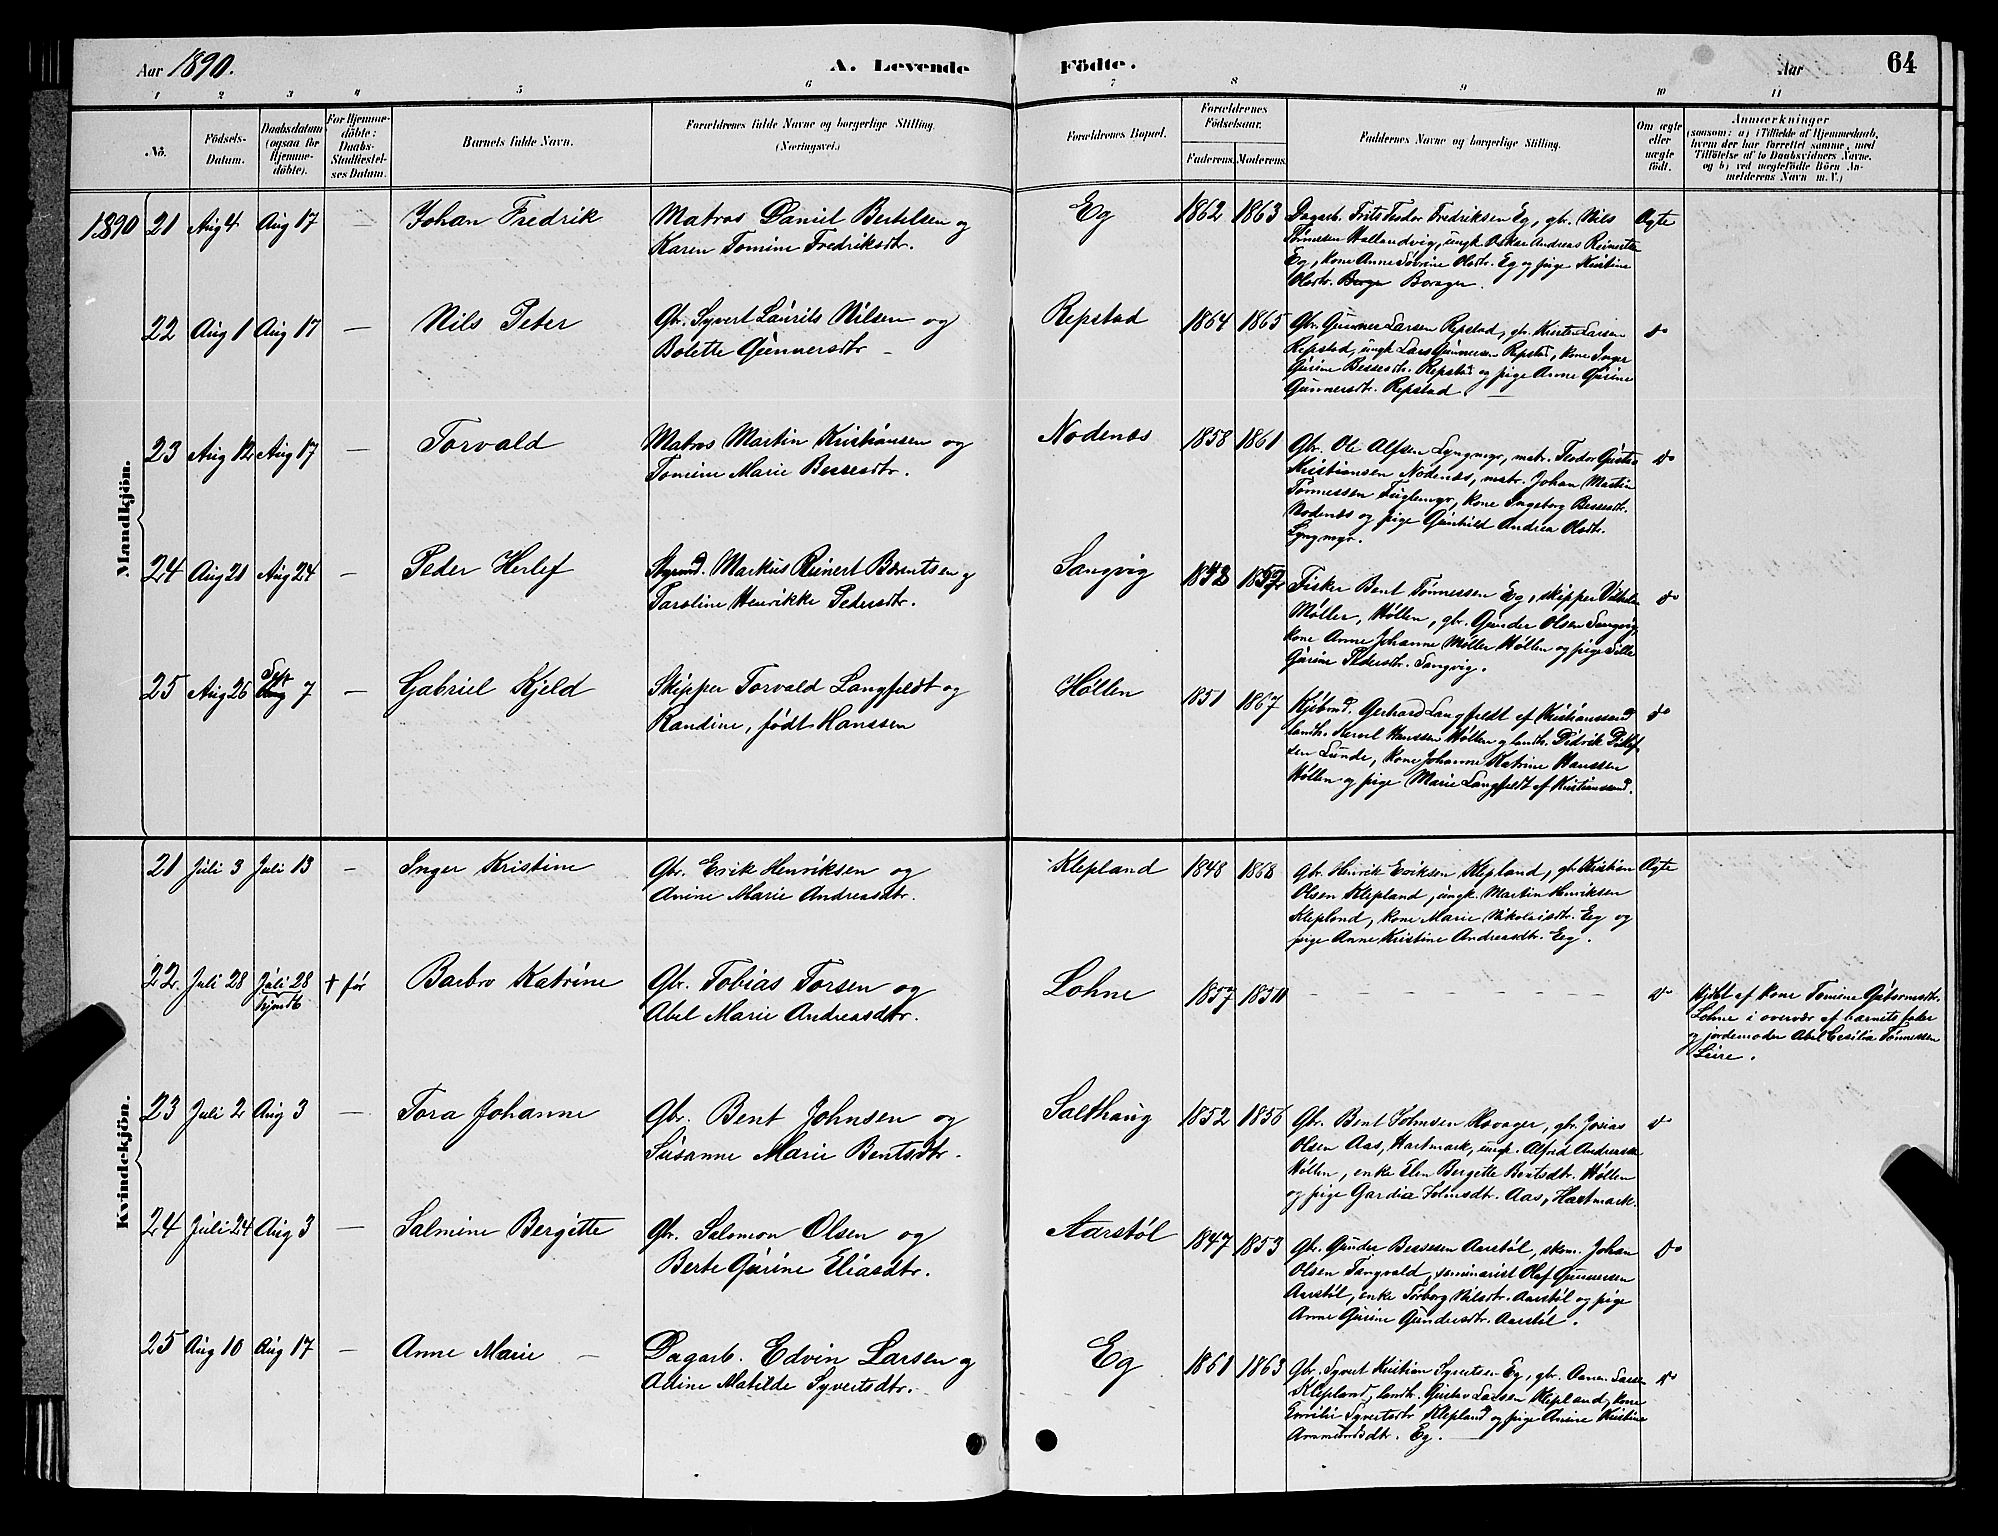 Aar 1890.
A. Levende Födte.
Aar
64
1 2 3 4 5 6 7 8 9 10 11
No.
Födsels-Datum.
Daabsdatum (ogsaa for Hjemme-döbte).
For Hjemme-döbte: Daabs-Stadfæstel-ses Datum.
Barnets fulde Navn.
Forældrenes fulde Navne og borgerlige Stilling. (Næringsvei.)
Forældrenes Bopæl.
Forældrenes Födselsaar.
Faderens. Moderens.
Faddernes Navne og borgerlige Stilling.
Om ægte eller uægte födt.
Anmærkninger
(saasom: a) i Tilfælde af Hjemmedaab, hvem der har forrettet samme, med Tilföielse af to Daabsvidners Navne, og b) ved uægtefödte Börn An-melderens Navn m. V.)
Mandkjön.
1890 21 Aug 4 Aug 17 — Johan Fredrik
Matros Daniel Bertelsen og
Karen Tomine Fredriksdt.
Eg 1862 1863
Dagarb. Frits Teodor Fredriksen Eg, gbr. Nils
Tönnessen Hallandvig, ungk. Oskar Andreas Reinertsen
Eg, kone Anne Sövrine Olsdtr. Eg og pige Kristine
Olsdtr. Borgen.
Ægte
22 Aug 1 Aug 17 — Nils Peter
Gbr. Syvert Laurits Nilsen og
Bolette Gunnersdtr —
Repstad 1864 1865
Gbr. Gunner Larsen Repstad, gbr. Kristen Larsen
Repstad, ungk Lars Gunnersen Repstad, kone Inger
Gurine Bessesdtr. Repstad og pige Anne Gurine
Gunnersdtr. Repstad. —
do
23 Aug 12 Aug 17 — Torvald
Matros Martin Kristiansen og
Tomine Marie Bessesdtr.
Nodenæs 1858 1861
Gbr. Ole Alfsen Lyngmyr, matr. Teodor Gustav
Kristiansen Nodenæs, matr. Johan Martin
Tönnessen Fuglemyr, kone Ingeborg Bessesdtr.
Nodenæs og pige Gunhild Andrea Olsdtr.
Lyngmyr.
do
24 Aug 21 Aug 24 — Peder Herlef
Styrmd. Markus Reinert Berntsen og
Taroline Henrikke Pedersdtr.
Langvig
Fisker Bent Tönnessen Eg, skipper Vilhelm
Möller, Höllen, gbr. Gunder Olsen Langvig,
kone Anne Johanne Möller Höllen og pige Sille
Gurine Pedersdtr. Langvig.
do
25 Aug 26 Sept 7 — Gabriel Kjeld
Skipper Torvald Langfeldt og
Randine, födt Hanssen
Höllen 1851 1867
Kjöbmd. Gerhard Langfeldt af Kristianssand
landh. Hanssen Höllen og landh. Didrik Ditlef
sen Lunde, kone Johanne Katrine Hanssen
Höllen og pige Marie Langfeldt af Kristianssand.
do
Kvindekjön.
21 Juli 3 Juli 13 — Inger Kristine
Gbr. Erik Henriksen og
Anine Marie Andreasdtr.
Klepland 1848 1868
Gbr. Henrik Eriksen Klepland, gbr Kristian
Olsen Klepland, ungk. Martin Henriksen
Klepland, kone Marie Nikolaisdtr. Eg og
pige Anne Kristine Andreasdtr. Eg.
Ægte
22. Juli 28 Juli 28 hjmdt. + för Barbro Katrine
Gbr. Tobias Torsen og
Abel Marie Andreasdtr.
Lohne 1857 1850
— — — — — — —
do
Hjdbt af kone Tomine Gutormsdtr.
Lohne i overvær af barnets fader
og jordemoder Abel Cesilia Tönnessen
Leire.
23 Juli 2 Aug 3 — Tora Johanne
Gbr. Bent Johnsen og
Susanne Marie Bentsdtr.
Salthaug 1852 1856
Gbr. Bent Tolmsen Aavager, gbr. Josias
Olsen Aas, Hartmark, ungk. Alfred Andreassen
Höllen, enke Elen Bergitte Bentsdtr. Höllen
og pige Gardia Tolmsdtr. Aas, Hartmark.
do
24 Juli 24 Aug 3 — Salmine Bergitte
Gbr. Salomon Olsen og
Berte Gurine Eliasdtr.
Aarstöl 1847 1853
Gbr. Gunder Bessesen Aarstöl, skom. Johan
Olsen Tangvald, seminarist Olaf Gunnersen
Aarstöl, enke Torborg Nilsdtr. Aarstöl og pige
Anne Gurine Gundersdtr. Aarstöl.
do
25 Aug 10 Aug 17 — Anne Marie —
Dagarb. Edvin Larsen og
Adine Matilde Syvertsdtr.
Eg 1861 1863
Gbr. Syvert Kristian Syvertsen Eg, gbr. Aanen Larsen
Klepland, landh. Gustav Larsen Klepland, kone
Emilie Syvertsdtr Klepland og pige Anine Kristine
Ammundsdtr. Eg. —
do